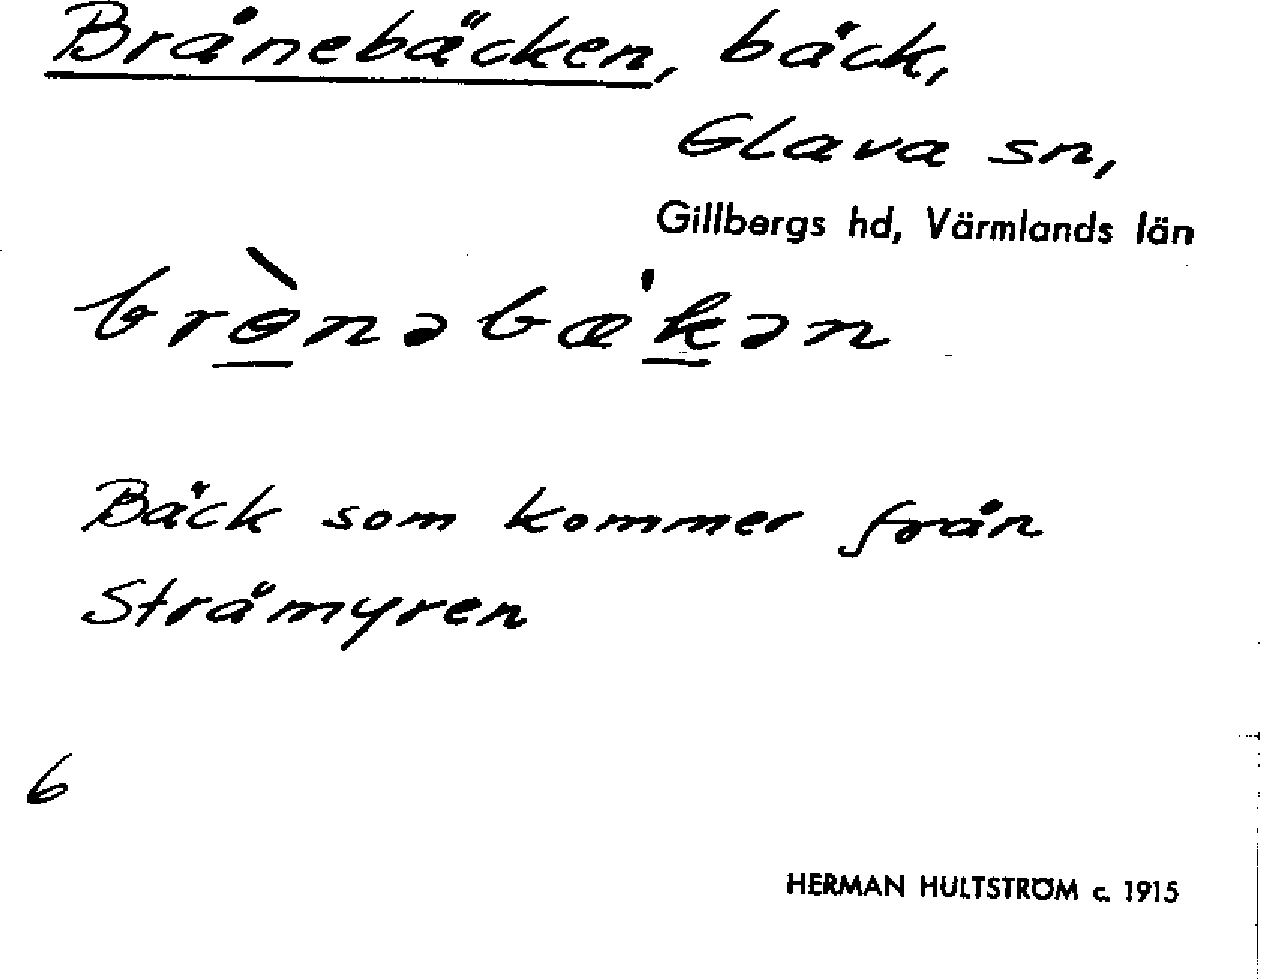 Brånebäcken, bäck,
Glava sn,
Gillbergs hd, Värmlands län
brònəbæ'kən
Bäck som kommer från
Stråmyren
6
HERMAN HULTSTRÖM c. 1915